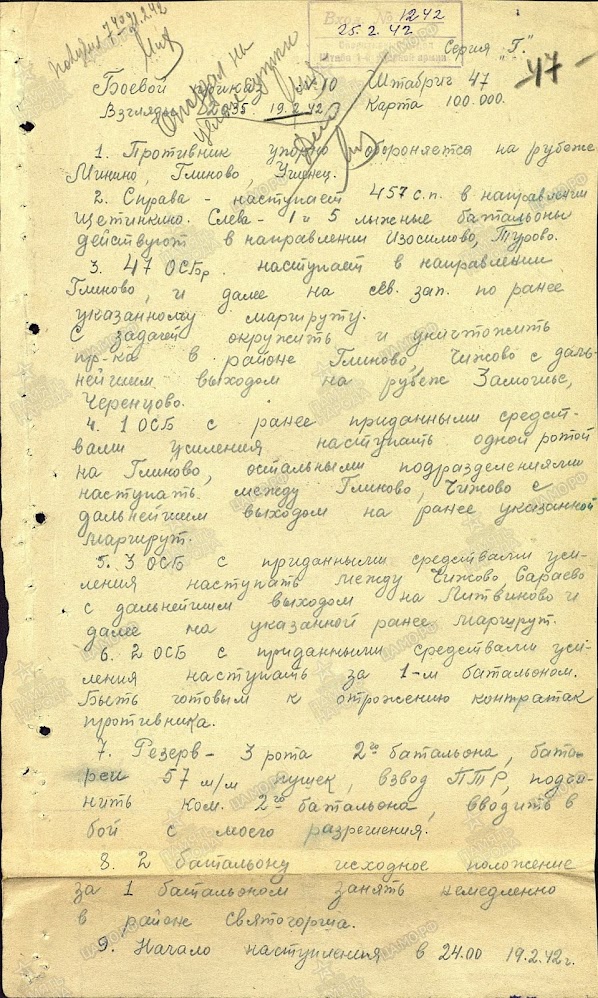 Вход. № 1242
25.2.42
Штаба 1-й ударной армии
Серия "Г".
47
Боевой приказ № 10 Штабриг 47
20.35 19.2.42 Карта 100.000.
1. Противник упорно обороняется на рубеже
Минино, Глиново,
2. Справа - наступает 457 с.п. в направлении
Щетинкино. Слева - 1 и 5 лыжные батальоны
действуют в направлении Изосимово, Турово.
3. 47 ОСБр. наступает в направлении
Глиново, и далее на сев. зап. по ранее
указанному маршруту.
С задачей окружить и уничтожить
пр-ка в районе Глиново, Чижово с даль-
нейшим выходом на рубеж
Черенцово.
4. 1 ОСБ с ранее приданными средст-
вами усиления наступать одной ротой
на Глиново, остальными подразделениями
наступать между Глиново, Чижово с
дальнейшим выходом на ранее указанной
маршрут.
5. 3 ОСБ с приданными средствами уси-
ления наступать между Чижово, Сараево
с дальнейшим выходом на Литвиново и
далее на указанной ранее маршрут.
6. 2 ОСБ с приданными средствами уси-
ления наступать за 1-м батальоном.
Быть готовым к отражению контратак
противника.
7. Резерв - 3 рота 2го батальона, бата-
реи 57 м/м пушек, взвод ПТР, подчи-
нить ком. 2го батальона, вводить в
бой с моего разрешения.
8. 2 батальону исходное положение
за 1 батальоном занять немедленно
в район святогорща.
9. Начало наступления в 24.00 19.2.42 г.